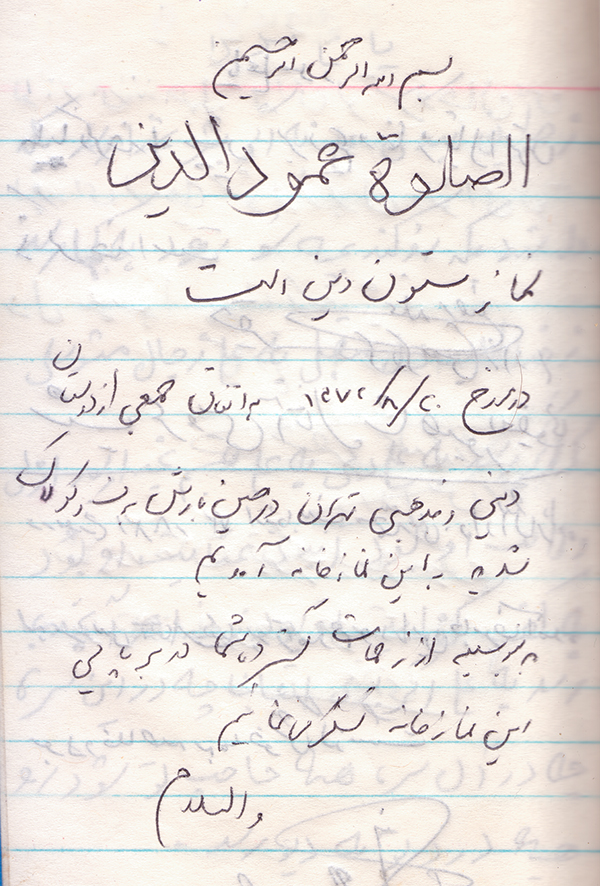 بسم الله الرحمن الرحیم
الصلوة عمود الدین
نماز ستون دین است
در مورخ ۱۳۷۲/۸/۲۰ به اتفاق جمعی از دوستان
دینی و مذهبی تهران در حین بارش برف و کولاک
شدید به این نمازخانه آمدیم
بدینوسیله از زحمات شما در برپایی
این نمازخانه تشکر می‌نمائیم
والسلام